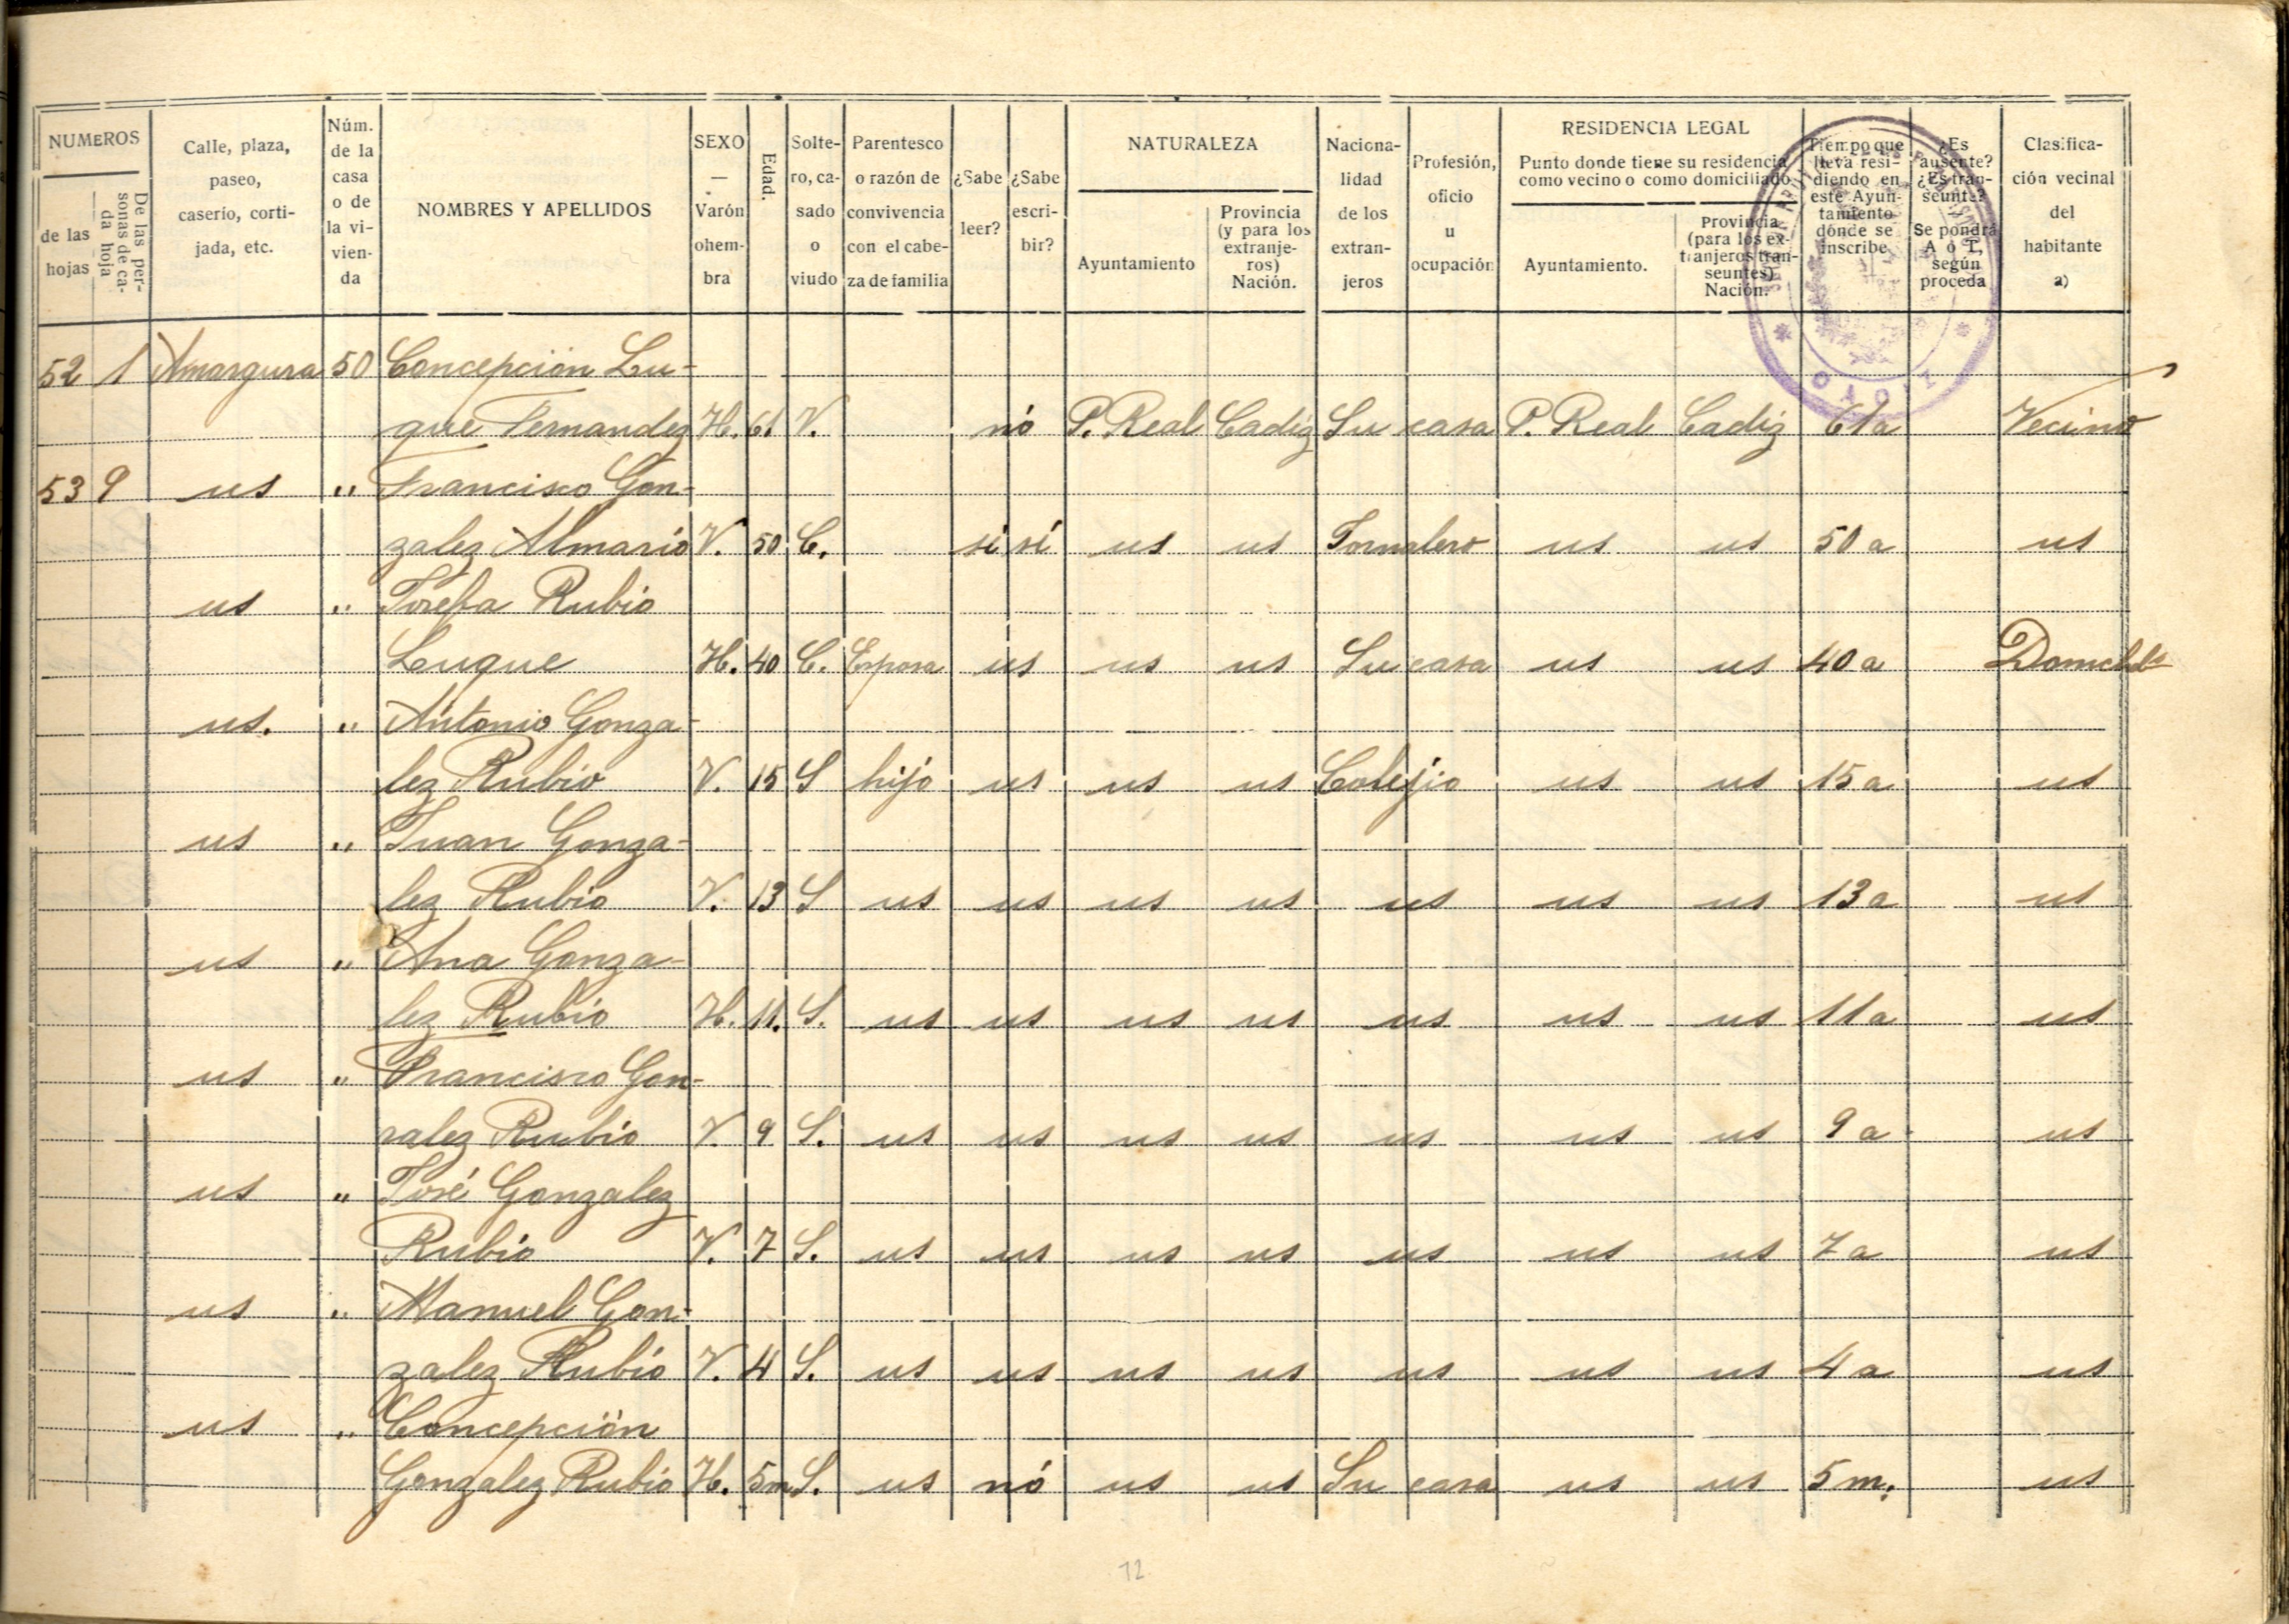 NUMEROS
de las hojas
De las personas de cada hoja
Calle, plaza, paseo, caserío, cortijada, etc.
Núm. de la casa o de la vivienda
NOMBRES Y APELLIDOS
SEXO — Varón o hembra
Edad.
Soltero, casado o viudo
Parentesco o razón de convivencia con el cabeza de familia
¿Sabe leer?
¿Sabe escribir?
NATURALEZA
Ayuntamiento
Provincia (y para los extranjeros) Nación.
Nacionalidad de los extranjeros
Profesión, oficio u ocupación
RESIDENCIA LEGAL
Punto donde tiene su residencia como vecino o como domiciliado
Ayuntamiento.
Provincia (para los extranjeros transeuntes) Nación.
Tiempo que lleva residiendo en este Ayuntamiento donde se inscribe
¿Es ausente? ¿Es transeunte? — Se pondrá A ó T, según proceda
Clasificación vecinal del habitante a)
CADIZ
52 1 Amargura 50 Concepción Lu-
que Fernandez H. 61 V. nó P. Real Cadiz Su casa P. Real Cadiz 61a Vecino
53 9 us " Francisco Gon-
zalez Almario V. 50 C. si si us us Jornalero us us 50 a us
us " Josefa Rubio
Luque H. 40 C. Esposa us us us Su casa us us 40 a Domcldo
us. " Antonio Gonza-
lez Rubio V. 15 S hijo us us us Colejio us us 15 a us
us " Juan Gonza-
lez Rubio V. 13 S us us us us us us us 13 a us
us " Ana Gonza-
lez Rubio H. 11. S. us us us us us us us 11a us
us " Francisco Gon-
zalez Rubio V. 9 S. us us us us us us us 9 a us
us " José Gonzalez
Rubio V. 7 S. us us us us us us us 7 a us
us " Manuel Gon-
zalez Rubio V. 4 S. us us us us us us us 4 a us
us " Concepción
Gonzalez Rubio H. 5m S. us nó us us Su casa us us 5 m. us
12